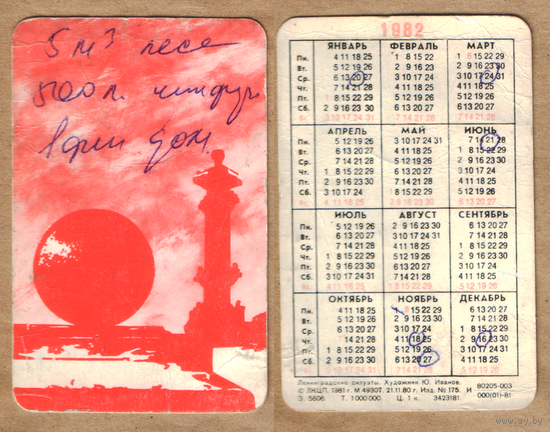 5 м³ лесе
1982
ЯНВАРЬ ФЕВРАЛЬ МАРТ
Пн. 4 11 18 25 1 8 15 22 1 8 15 22 29
Вт. 5 12 19 26 2 9 16 23 2 9 16 23 30
Ср. 6 13 20 27 3 10 17 24 3 10 17 24 31
Чт. 7 14 21 28 4 11 18 25 4 11 18 25
Пт. 1 8 15 22 29 5 12 19 26 5 12 19 26
Сб. 2 9 16 23 30 6 13 20 27 6 13 20 27
Вс. 3 10 17 24 31 7 14 21 28 7 14 21 28
АПРЕЛЬ МАЙ ИЮНЬ
Пн. 5 12 19 26 3 10 17 24 31 7 14 21 28
Вт. 6 13 20 27 4 11 18 25 1 8 15 22 29
Ср. 7 14 21 28 5 12 19 26 2 9 16 23 30
Чт. 1 8 15 22 29 6 13 20 27 3 10 17 24
Пт. 2 9 16 23 30 7 14 21 28 4 11 18 25
Сб. 3 10 17 24 1 8 15 22 29 5 12 19 26
Вс. 4 11 18 25 2 9 16 23 30 6 13 20 27
ИЮЛЬ АВГУСТ СЕНТЯБРЬ
Пн. 5 12 19 26 2 9 16 23 30 6 13 20 27
Вт. 6 13 20 27 3 10 17 24 31 7 14 21 28
Ср. 7 14 21 28 4 11 18 25 1 8 15 22 29
Чт. 1 8 15 22 29 5 12 19 26 2 9 16 23 30
Пт. 2 9 16 23 30 6 13 20 27 3 10 17 24
Сб. 3 10 17 24 31 7 14 21 28 4 11 18 25
Вс. 4 11 18 25 1 8 15 22 29 5 12 19 26
ОКТЯБРЬ НОЯБРЬ ДЕКАБРЬ
Пн. 4 11 18 25 1 8 15 22 29 6 13 20 27
Вт. 5 12 19 26 2 9 16 23 30 7 14 21 28
Ср. 6 13 20 27 3 10 17 24 1 8 15 22 29
Чт. 7 14 21 28 4 11 18 25 2 9 16 23 30
Пт. 1 8 15 22 29 5 12 19 26 3 10 17 24 31
Сб. 2 9 16 23 30 6 13 20 27 4 11 18 25
Вс. 3 10 17 24 31 7 14 21 28 5 12 19 26
Ленинградские силуэты. Художник Ю. Иванов. 80205-003
© ЛКЦП. 1981 г. М 49307. 21.11.80 г. Изд. № 175. И 000(01)-81
З. 5606. Т. 1 000 000. Ц. 1 к. 3423181.
www.ay.by